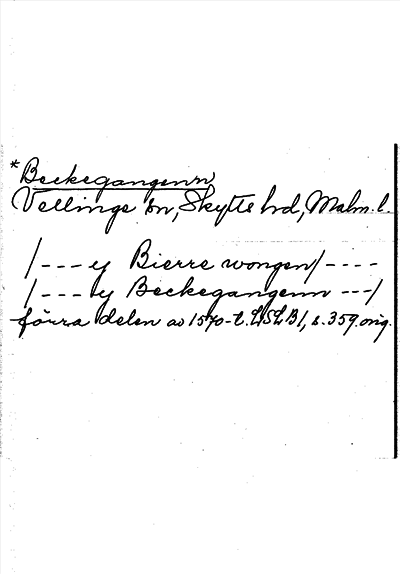 *Beckegangenn
Vellinge sn, Skytts hd, Malm. l.
/--- ej Bierre wongen/----
/--- ej Beckegangenn ---/
förra delen av 1570-t. LSLB1, s. 359 orig.